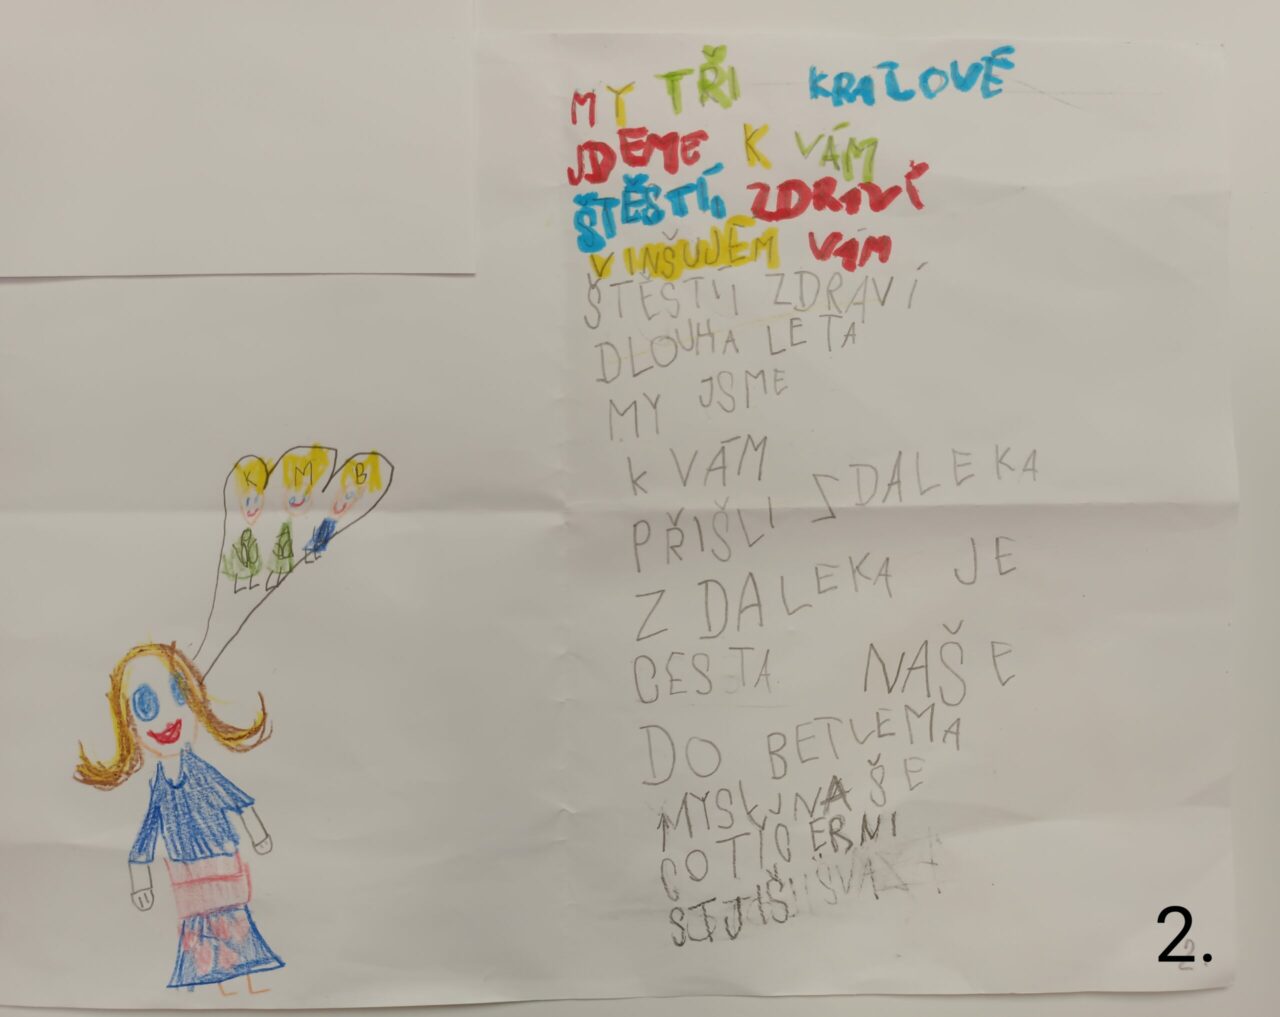 K M B
MY TŘI KRALOVÉ
JDEME K VÁM
ŠTĚSTÍ, ZDRAVÍ
VINŠUJEM VÁM
ŠTĚSTÍ ZDRAVÍ
DLOUHA LETA
MY JSME
K VÁM
PŘIŠLI ZDALEKA
Z DALEKA JE
CESTA NAŠE
DO BETLEMA
MYSLJNAŠE
COTYČERNI
2.